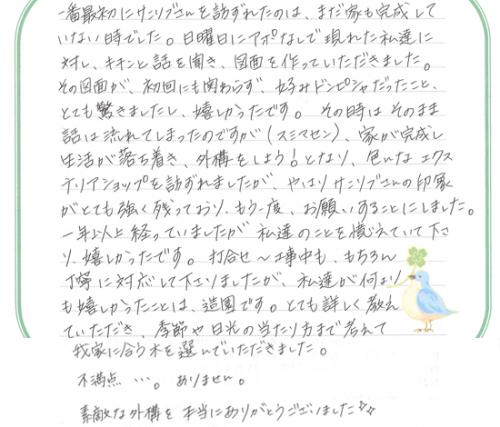 一番最初にサニリブさんを訪ずれたのは、まだ家も完成して
いない時でした。日曜日にアポなしで現れた私達に
対し、キチンと話を聞き、図面を作っていただきました。
その図面が、初回にも関わらず、好みドンピシャだったこと、
とても驚きましたし、嬉しかったです。 その時はそのまま
話は流れてしまったのですが(スミマセン)、家が完成し
生活が落ち着き、外構をしよう!となり、色いなエクス
テリアショップを訪ずれましたが、やはりサニリブさんの印象
がとても強く残っており、もう一度、お願いすることにしました。
一年以上経っていましたが私達のことを憶えていて下さ
り、嬉しかったです。 打合せ〜工事中も、もちろん
丁寧に対応して下さりましたが、私達が何より
も嬉しかったことは、造園です。とても詳しく教え
ていただき、季節や日光の当たり方まで考えて
我家に合う木を選んでいただきました。
不満点 …。 ありません。
素敵な外構を本当にありがとうございました☆☆